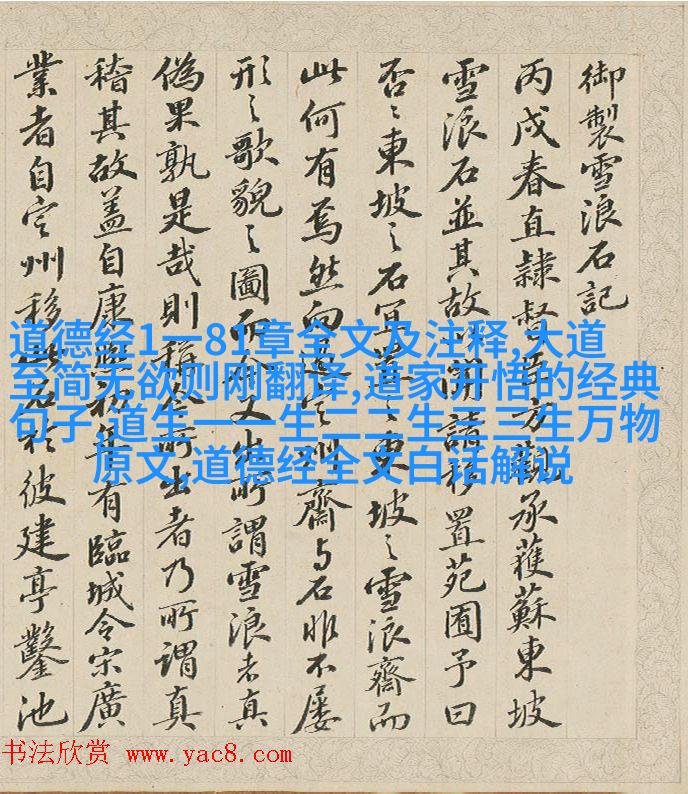 御製雪浪石記
丙戌春直隸督臣方觀承獲蘇東坡
雪浪石並其故以聞請移置苑囿予曰
否〻東坡之石宜葺之東坡之雪浪齋而
此何有焉然向過定州齋与石非不屡
形之歌貌之圖而今又出所謂雪浪者真
偽果孰是哉則稱今所出者乃所謂真
稽其故盖自康熙初年有臨城令宋廣
業者自定州移此石於彼建亭鑿池
道德经1一81章全文及注释,大道
至简无欲则刚翻译,道家开悟的经典
句子,道生一一生二二生三三生万物
原文,道德经全文白话解说
书法欣赏 www.yac8.com